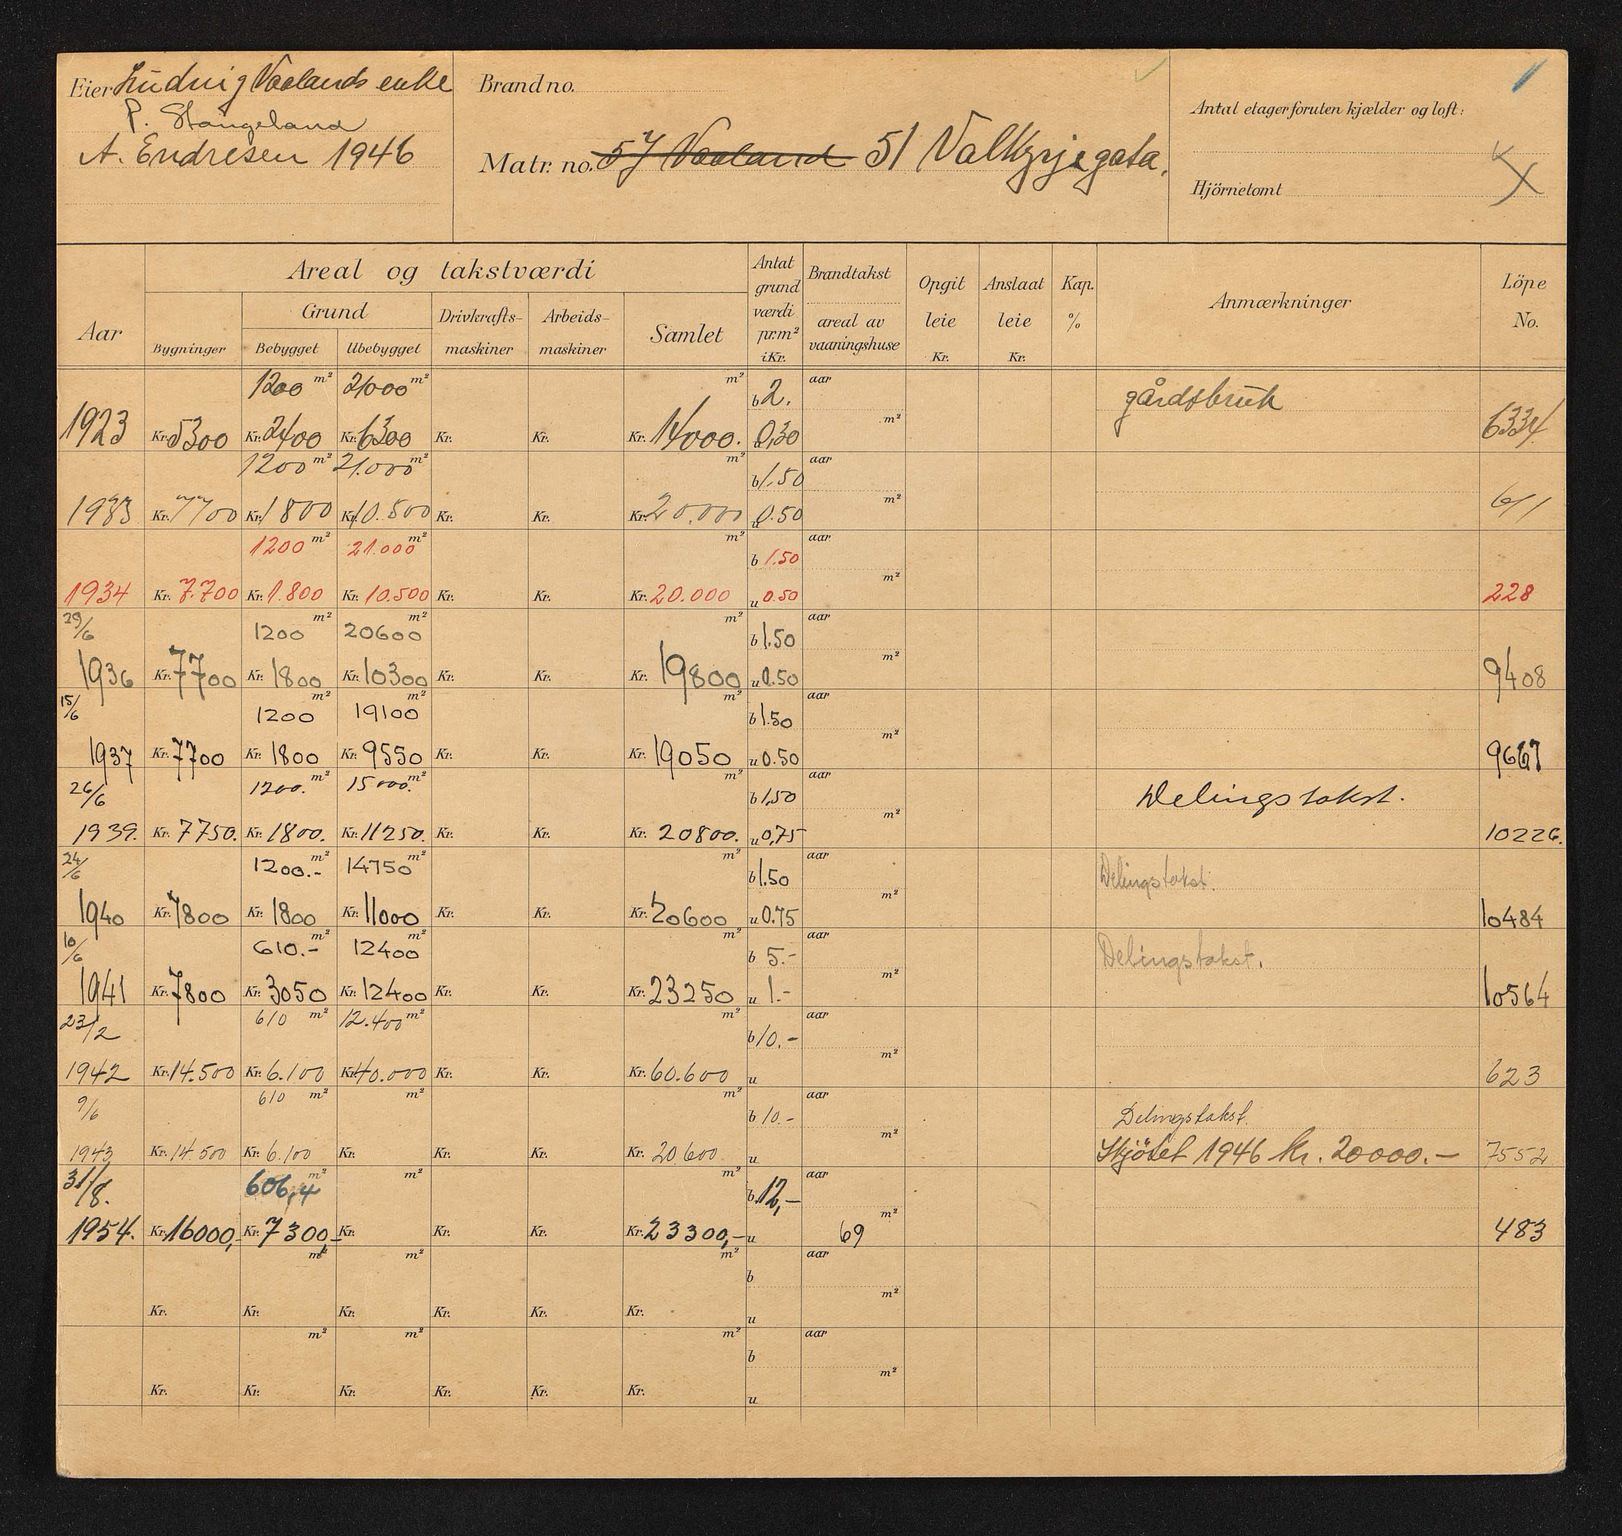 Eier Ludvig Vaalands enke
P. Stangeland
A. Endresen 1946
Brand no.
Matr. no. 57 Vaaland 51 Valkyrjegata.
Antal etager foruten kjælder og loft:
Hjörnetomt X
Aar
Areal og takstværdi
Grund
Bygninger Bebygget Ubebygget
Drivkrafts-maskiner
Arbeids-maskiner
Samlet
Antat grund værdi pr.m² i Kr.
Brandtakst
areal av vaaningshuse
Opgit leie Kr.
Anslaat leie Kr.
Kap. %
Anmærkninger
Löpe No.
1200 m² 21000 m² m² b 2. aar gårdsbruk
1923 Kr. 5300 Kr. 2400 Kr. 6300 Kr. Kr. Kr. 14000. u 0,30 m² 6334
1200 m² 21.000 m² m² b 1.50 aar
1933 Kr. 7700 Kr. 1800 Kr. 10.500 Kr. Kr. Kr. 20.000 u 0.50 m² 611
1200 m² 21.000 m² m² b 1.50 aar
1934 Kr. 7.700 Kr. 1.800 Kr. 10.500 Kr. Kr. Kr. 20.000 u 0.50 m² 228
29/6 1200 m² 20600 m² m² b 1.50 aar
1936 Kr. 7700 Kr. 1800 Kr. 10300 Kr. Kr. Kr. 19800 u 0.50 m² 9408
15/6 1200 m² 19100 m² m² b 1.50 aar
1937 Kr. 7700 Kr. 1800 Kr. 9550 Kr. Kr. Kr. 19050 u 0.50 m² 9667
26/6 1200. m² 15000. m² m² b 1,50 aar Delingstakst.
1939. Kr. 7750. Kr. 1800. Kr. 11250. Kr. Kr. Kr. 20800. u 0,75 m² 10226.
24/6 1200.- m² 14750 m² m² b 1.50 aar Delingstakst.
1940 Kr. 7800 Kr. 1800 Kr. 11000 Kr. Kr. Kr. 20600 u 0.75 m² 10484
10/6 610.- m² 12400 m² m² b 5.- aar Delingstakst.
1941 Kr. 7800 Kr. 3050 Kr. 12400 Kr. Kr. Kr. 23250 u 1.- m² 10564
23/2 610 m² 12.400 m² m² b 10.- aar
1942 Kr. 14.500 Kr. 6.100 Kr. 40.000 Kr. Kr. Kr. 60.600 u m² 623
9/6 610 m² m² m² b 10.- aar Delingstakst.
1943 Kr. 14.500 Kr. 6.100 Kr. Kr. Kr. Kr. 20.600 u m² Skjötet 1946 kr. 20000.- 7552
31/8. 606,4 m² m² m² b 12,- aar
1954. Kr. 16000,- Kr. 7300,- Kr. Kr. Kr. Kr. 23300,- u 69 m² 483
m² m² m² b aar
Kr. Kr. Kr. Kr. Kr. Kr. u m²
m² m² m² b aar
Kr. Kr. Kr. Kr. Kr. Kr. u m²